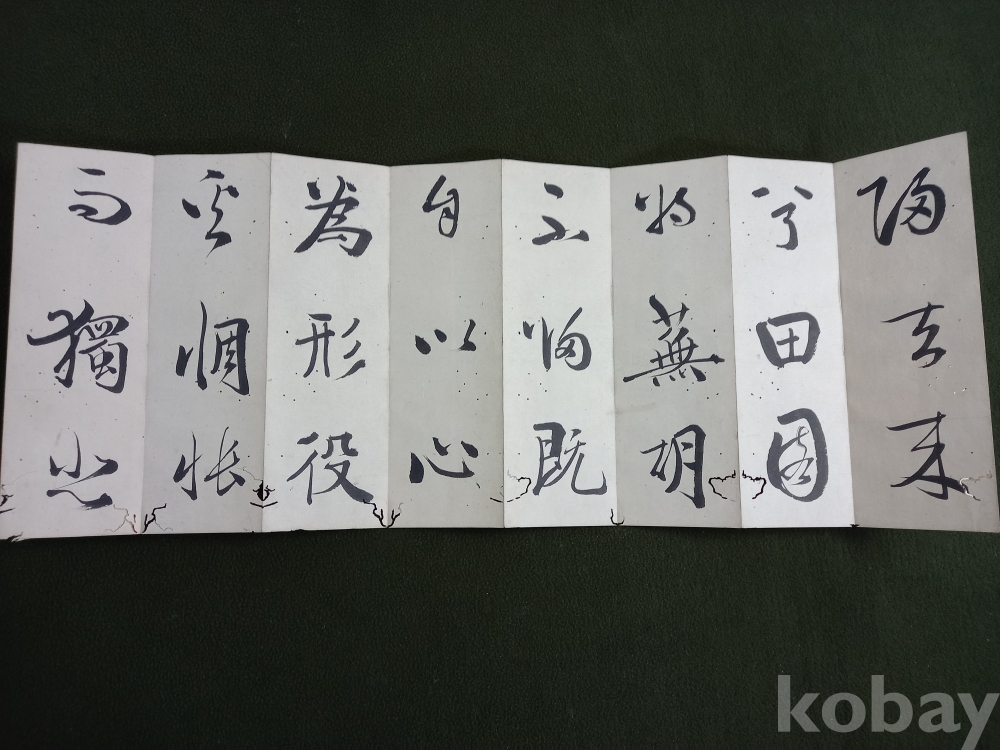 歸去来
兮田園
将蕪胡
不歸既
自以心
為形役
奚惆悵
而獨悲
kobay